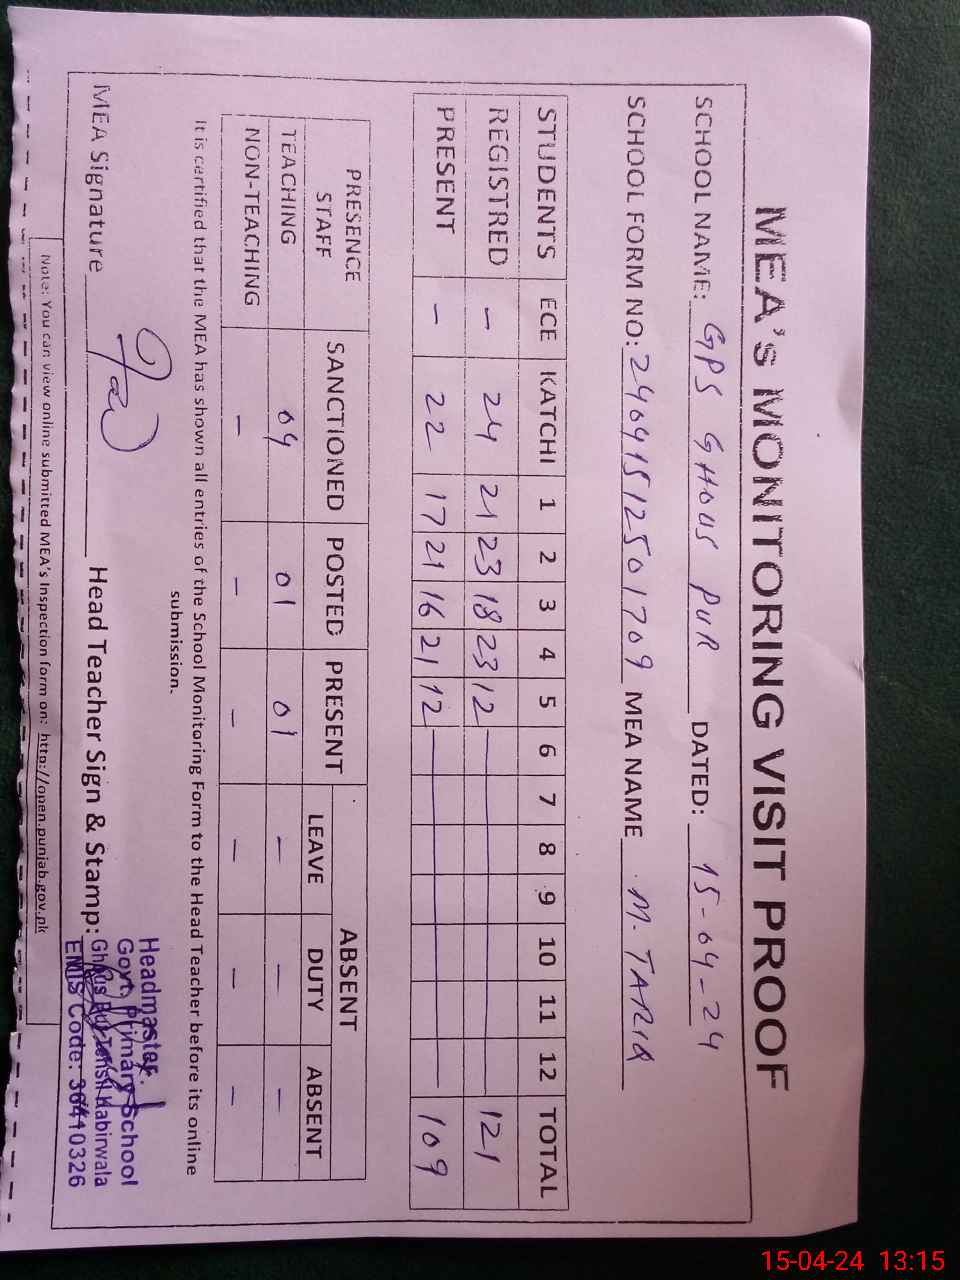 MEA'S MONITORING VISIT PROOF
SCHOOL NAME: GPS GHOUS PUR DATED: 15-04-24
SCHOOL FORM NO: 24041512501709 MEA NAME M. TARIQ
STUDENTS ECE KATCHI 1 2 3 4 5 6 7 8 9 10 11 12 TOTAL
REGISTRED - 24 21 23 18 23 12 121
PRESENT - 22 17 21 16 21 12 109
PRESENCE STAFF SANCTIONED POSTED PRESENT ABSENT
LEAVE DUTY ABSENT
TEACHING 04 01 01 - - -
NON-TEACHING - - - - - -
It is certified that the MEA has shown all entries of the School Monitoring Form to the Head Teacher before its online
submission.
MEA Signature Head Teacher Sign & Stamp:
Headmaster
Govt. Primary School
Ghous Pur Tehsil Kabirwala
EMIS Code: 36410326
Note: You can view online submitted MEA's Inspection form on: http://open.punjab.gov.pk
15-04-24 13:15